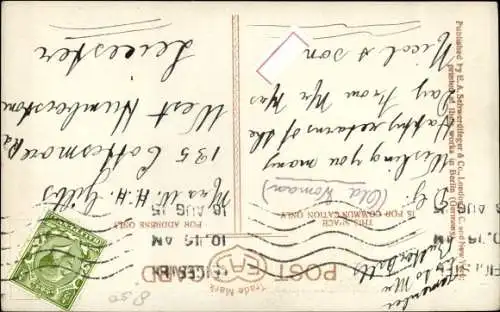 POST CARD
Trade Mark
LEICESTER
10.15 AM
16 AUG 15
THIS SPACE
IS FOR COMMUNICATION ONLY
FOR ADDRESS ONLY
remember
us to Mr
D. G.
(Old Woman)
Wishing you many
Happy returns of the
Day from Mr & Mrs
Nicol & Son
Mrs W. H. H. Gibbs
135 Cottesmore Rd
West Humberstone
Leicester
Published by E. A. Schwerdtfeger & Co., London, E.C. and New York;
printed at their works in Berlin (Germany).
8.50